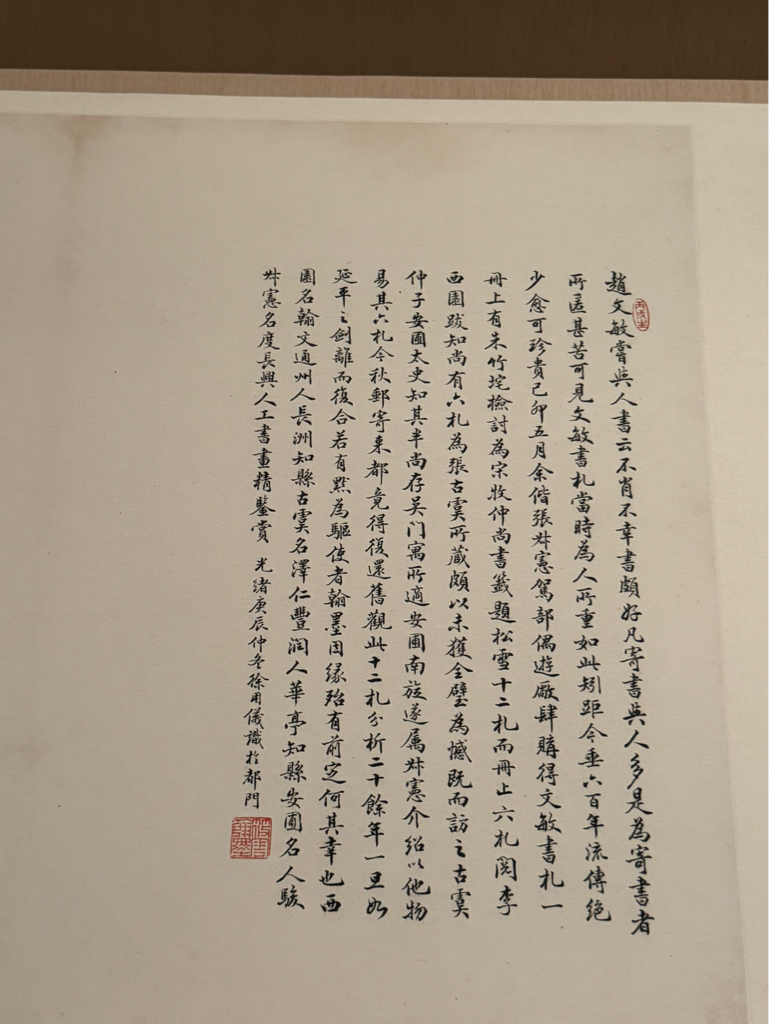 趙文敏嘗與人書云不肖不幸書頗好凡寄書與人多是為寄書者
所匿甚苦可見文敏書札當時為人所重如此矧距今垂六百年流傳絕
少愈可珍貴己卯五月余偕張叔憲駕部偶遊廠肆購得文敏書札一
冊上有朱竹垞檢討為宋牧仲尚書籤題松雪十二札而冊止六札閱李
西園跋知尚有六札為張古虞所藏頗以未獲全璧為憾既而訪之古虞
仲子安圃太史知其半尚存吴門寓所適安圃南旋遂属叔憲介紹以他物
易其六札今秋郵寄来都竟得復還舊觀此十二札分析二十餘年一旦如
延平之劍離而復合若有默為驅使者翰墨因緣殆有前定何其幸也西
園名翰文通州人長洲知縣古虞名澤仁豐潤人華亭知縣安圃名人駿
叔憲名度長興人工書畫精鑒賞 光緒庚辰仲冬徐用儀識於都門